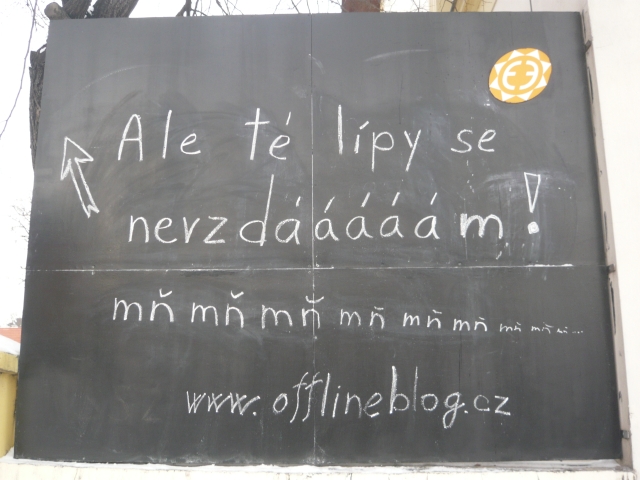 Ale té lípy se
nevzdááááám!
mň mň mň mň mň mň mň mň mň...
www.offlineblog.cz